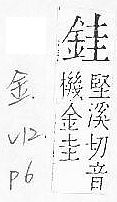 銈
堅溪切音
機金圭
金.
V12.
p6